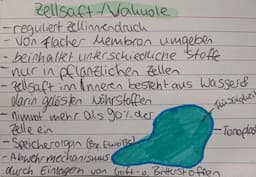 Zellsaft-Vakuole
- reguliert Zellinnendruck
- von flacher Membran umgeben
- beinhaltet unterschiedliche Stoffe
- nur in pflanzlichen Zellen
- Zellsaft im Inneren besteht aus Wasser &
darin gelösten Nährstoffen
- nimmt mehr als 90% der
Zelle ein
- Speicherorgan (Bsp. Eiweiße)
- Abwehrmechanismus
durch Einlagern von Gift- o. Bitterstoffen
Flüssigkeit
Tonoplast